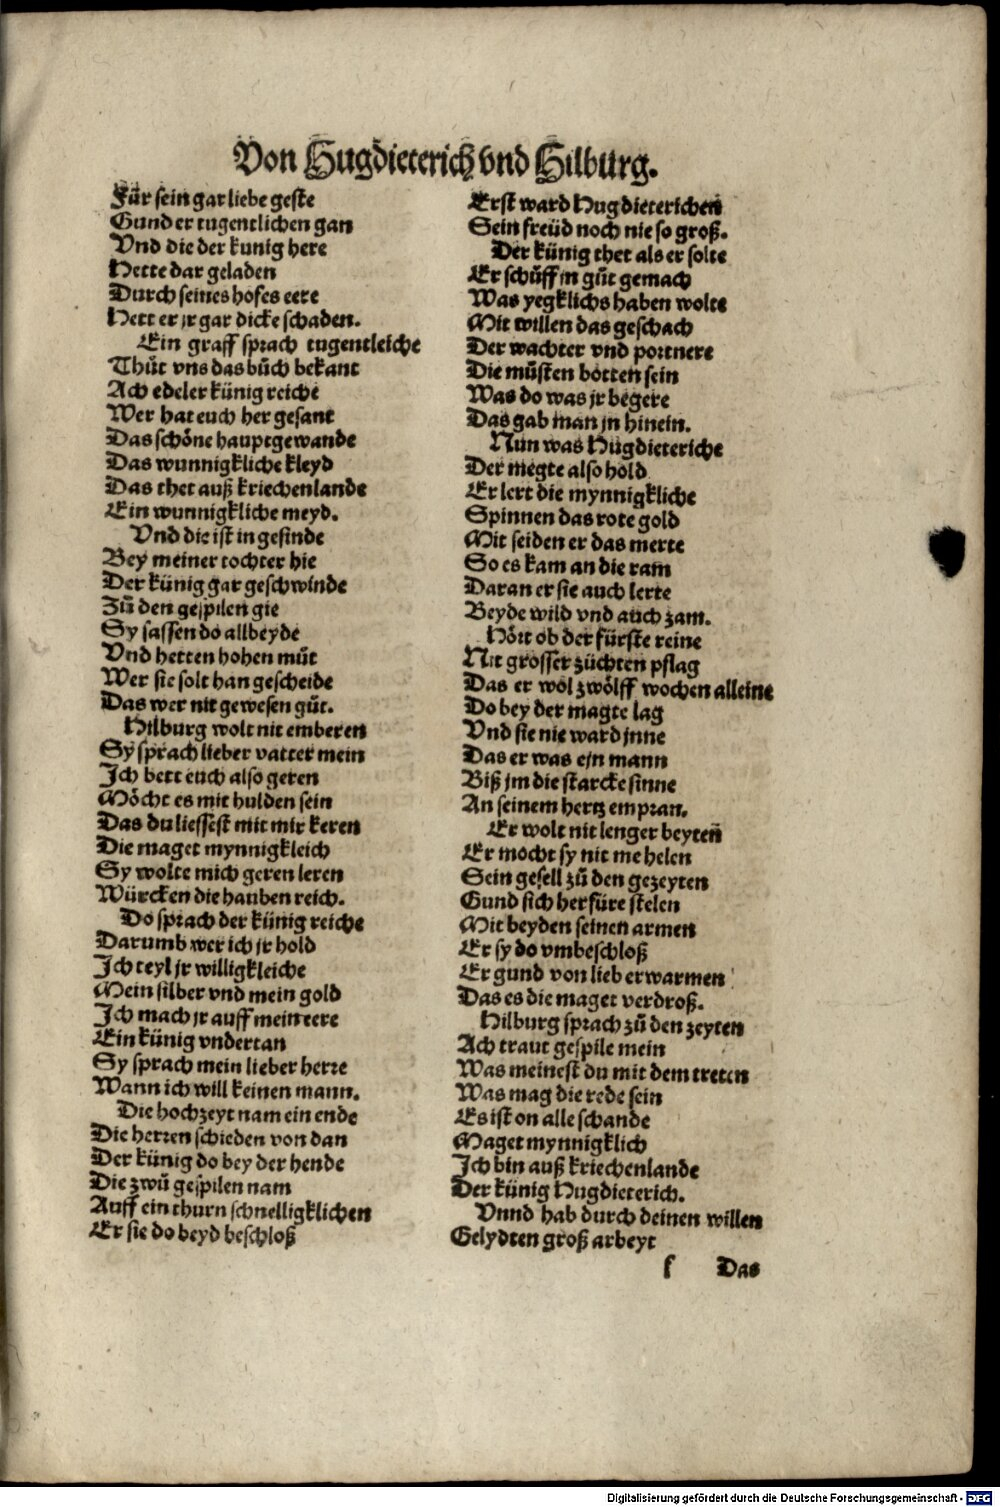 Von Hugdieterich vnd Hilburg.
Für sein gar liebe geste
Gund er tugentlichen gan
Vnd die der kunig here
Hette dar geladen
Durch seines hofes eere
Hett er jr gar dicke schaden.
Ein graff sprach tugentleiche
Thůt vns das bůch bekant
Ach edeler künig reiche
Wer hat euch her gesant
Das schöne hauptgewande
Das wunnigkliche kleyd
Das thet auß kriechenlande
Ein wunnigkliche meyd.
Vnd die ist in gesinde
Bey meiner tochter hie
Der künig gar geschwinde
Zů den gespilen gie
Sy sassen do allbeyde
Vnd hetten hohen můt
Wer sie solt han gescheide
Das wer nit gewesen gůt.
Hilburg wolt nit emberen
Sy sprach lieber vatter mein
Ich bett euch also geren
Möcht es mit hulden sein
Das du liessest mit mir keren
Die maget mynnigkleich
Sy wolte mich geren leren
Würcken die hauben reich.
Do sprach der künig reiche
Darumb wer ich jr hold
Ich teyl jr willigkleiche
Mein silber vnd mein gold
Ich mach jr auff mein eere
Ein künig vndertan
Sy sprach mein lieber herre
Wann ich will keinen mann.
Die hochzeyt nam ein ende
Die herren schieden von dan
Der künig do bey der hende
Die zwů gespilen nam
Auff ein thurn schnelligklichen
Er sie do beyd beschloß
Erst ward Hugdieterichen
Sein freüd noch nie so groß.
Der künig thet als er solte
Er schůff jn gůt gemach
Was yegklichs haben wolte
Mit willen das geschach
Der wachter vnd portnere
Die můsten botten sein
Was do was jr begere
Das gab man jn hinein.
Nun was Hugdieteriche
Der megte also hold
Er lert die mynnigkliche
Spinnen das rote gold
Mit seiden er das merte
So es kam an die ram
Daran er sie auch lerte
Beyde wild vnd auch zam.
Hört ob der fürste reine
Nit grosser züchten pflag
Das er wol zwölff wochen alleine
Do bey der magte lag
Vnd sie nie ward jnne
Das er was ein mann
Biß jm die starcke sinne
An seinem hertz empran.
Er wolt nit lenger beyten
Er mocht sy nit me helen
Sein gesell zů den gezeyten
Gund sich herfüre stelen
Mit beyden seinen armen
Er sy do vmbeschloß
Er gund von lieb erwarmen
Das es die maget verdroß.
Hilburg sprach zů den zeyten
Ach traut gespile mein
Was meinest du mit dem treten
Was mag die rede sein
Es ist on alle schande
Maget mynnigklich
Ich bin auß kriechenlande
Der künig Hugdieterich.
Vnnd hab durch deinen willen
Gelydten groß arbeyt
f Das
Digitalisierung gefördert durch die Deutsche Forschungsgemeinschaft - DFG